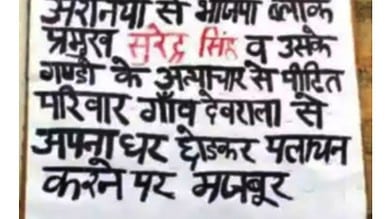 अरनिया से भाजपा ब्लाक
प्रमुख सुरेन्द्र सिंह व उसके
गुण्डो के अत्याचार से पीड़ित
परिवार गाँव देवराला से
अपना घर छोडकर पलायन
करने पर मजबूर